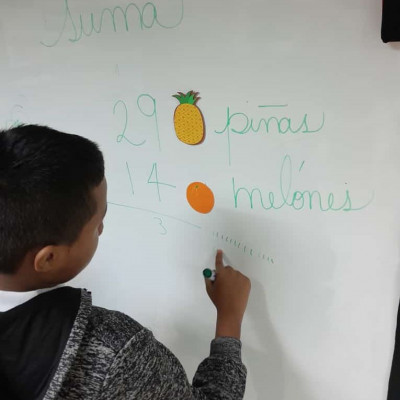 Suma
29 piñas
14 melónes
3